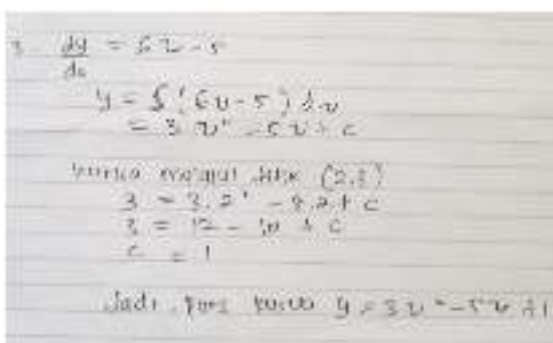 3. dy/dx = 6x - 5
y = ∫(6x-5) dx
= 3x² - 5x + c
kurva melalui titik (2,3)
3 = 3.2² - 5.2 + c
3 = 12 - 10 + c
c = 1
Jadi, pers kurva y = 3x² - 5x + 1